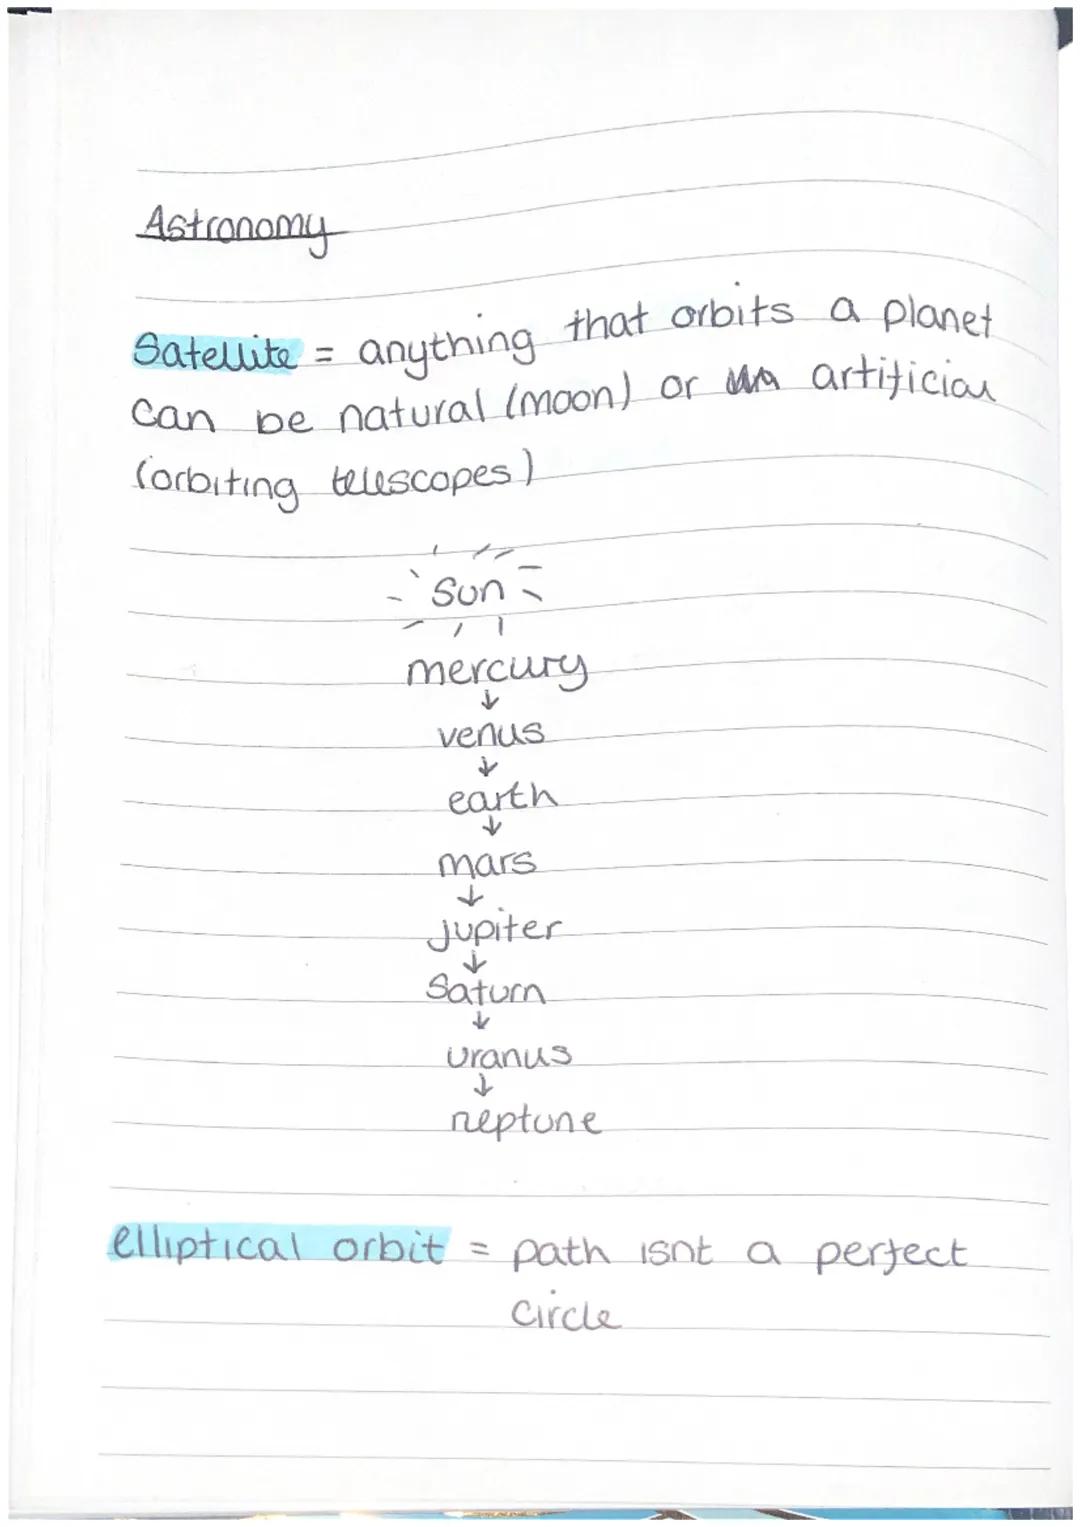 Astronomy
Satellite = anything that orbits a planet
can be natural (moon) or artificial
(orbiting telescopes)
Sun
mercury
↓
venus
↓
earth
↓
mars
↓
jupiter
↓
Saturn
↓
uranus
↓
neptune
elliptical orbit = path isnt a perfect
circle